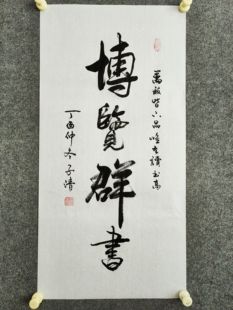 博覽群書
萬般皆下品唯有讀書高
丁酉仲冬子清